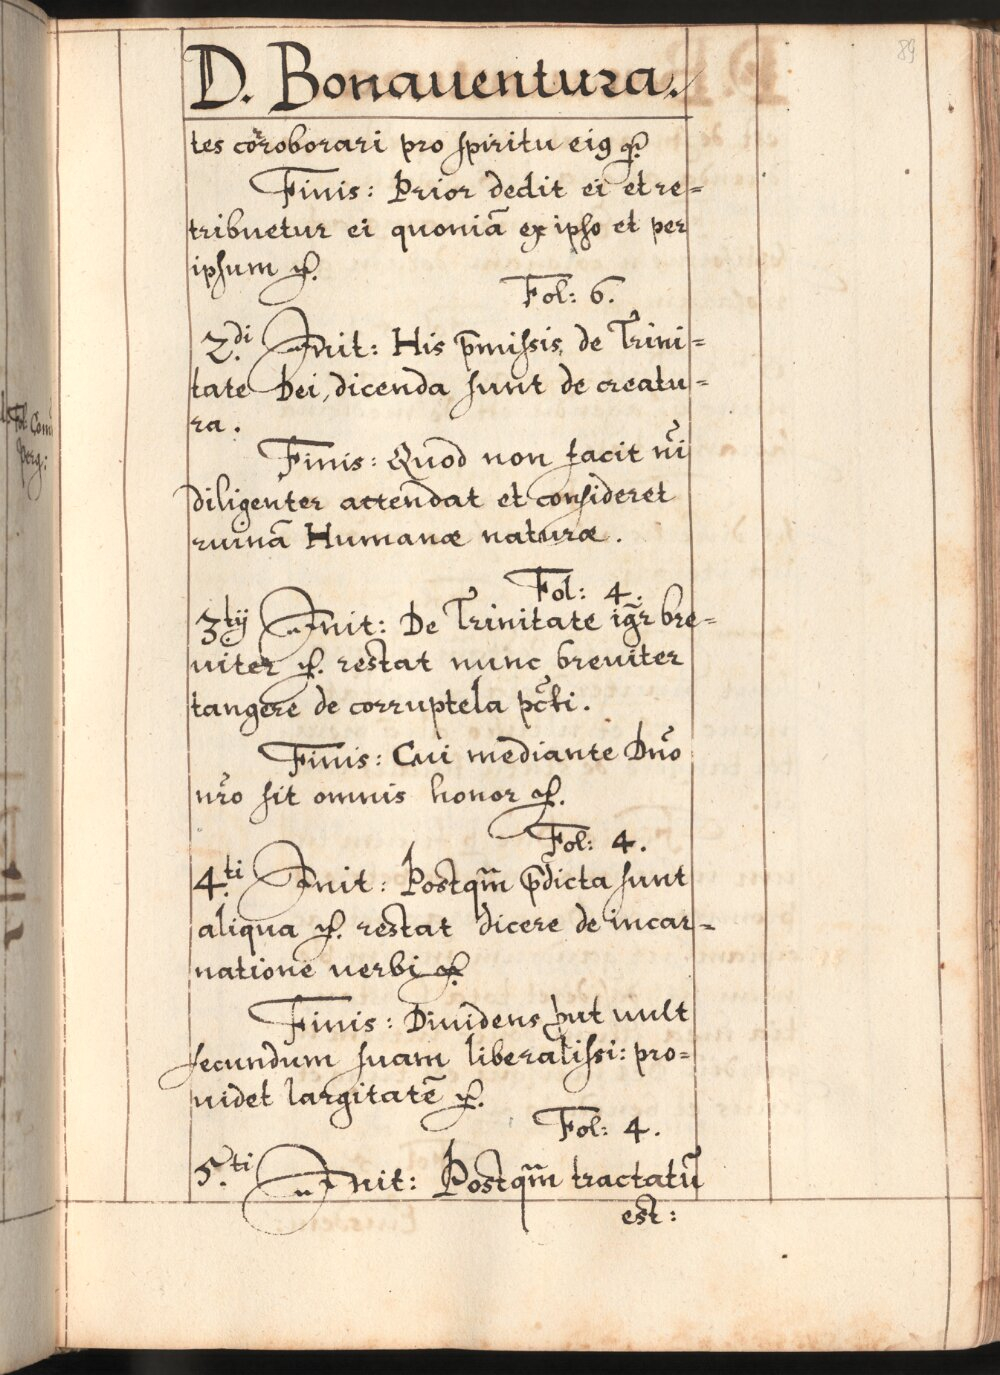 89
D. Bonauentura.
tes cor̃roborari pro spiritu eig ꝛc.
Finis: Prior dedit ei et re=
tribuetur ei quoniã ex ipso et per
ipsum ꝛc.
Fol: 6.
2.di Init: His p̃missis, de Trini=
tate Dei, dicenda sunt de creatu=
ra.
Finis: Quod non facit nĩ
diligenter attendat et consideret
ruinã Humanæ naturæ.
Fol: 4.
3.tij Init: De Trinitate ig̃r bre=
uiter ꝛc. restat nunc breuiter
tangere de corruptela pc̃ti.
Finis: Cui mediante Dño
nr̃o sit omnis honor ꝛc.
Fol: 4.
4.ti Init: Postqm̃ p̃dicta sunt
aliqua ꝛc. restat dicere de incar=
natione uerbi ꝛc.
Finis: Diuidens ꝓut uult
secundum suam liberalissi: pro=
uidet largitatẽ ꝛc.
Fol: 4.
5.ti Init: Postqm̃ tractatũ
est:
Fol: Com
perg: